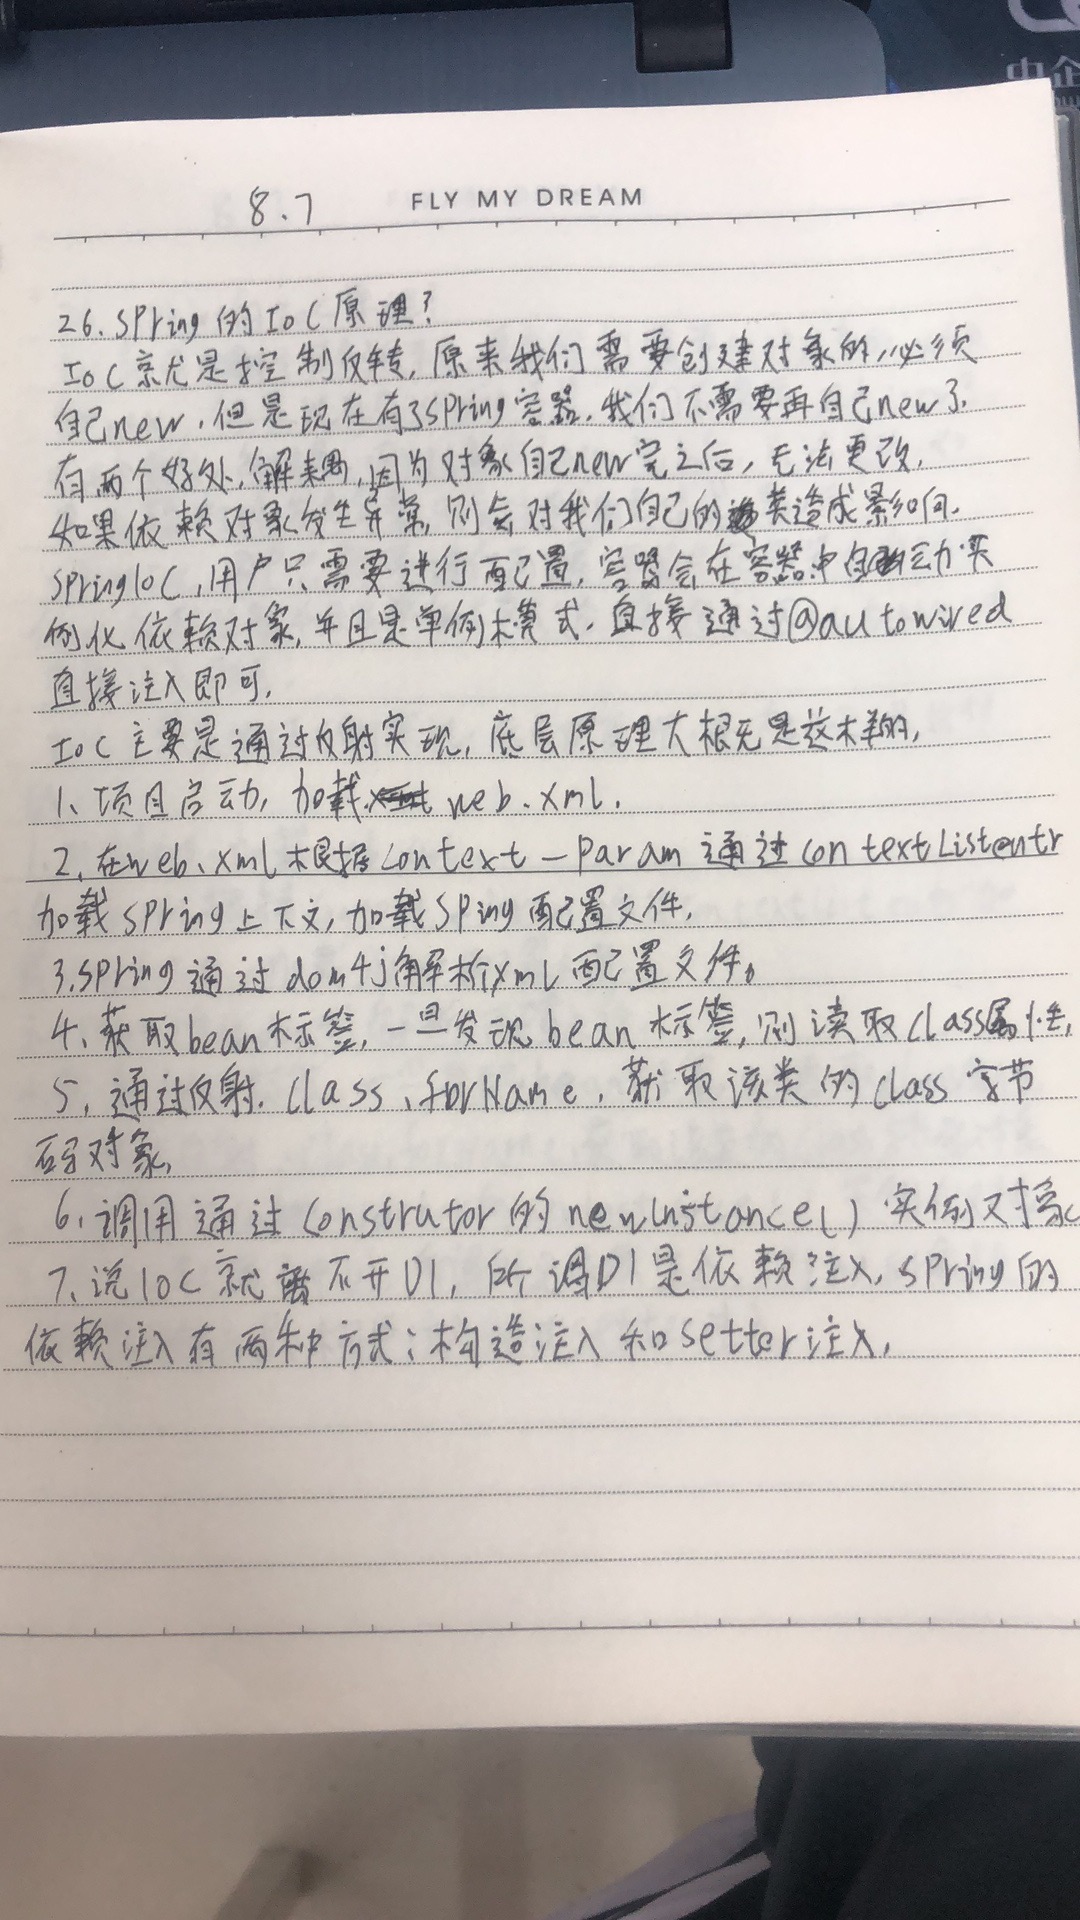 中企
8.7
FLY MY DREAM
26.Spring的IoC原理?
IoC就是控制反转,原来我们需要创建对象的,必须
自己new,但是现在有了Spring容器,我们不需要再自己new了.
有两个好处,解耦,因为对象自己new完之后,无法更改,
如果依赖对象发生异常,则会对我们自己的类造成影响.
SpringIOC,用户只需要进行配置,容器会在容器中自动实
例化依赖对象,并且是单例模式,直接通过@autowired
直接注入即可.
IoC主要是通过反射实现,底层原理大概是这样的,
1、项目启动,加载web.xml.
2,在web.xml根据context-param通过contextListentr
加载spring上下文,加载sping配置文件,
3.spring通过dom4j解析xml配置文件。
4、获取bean标签,一旦发现bean标签,则读取class属性,
5,通过反射.class.forName,获取该类的class字节
码对象,
6、调用通过construtor的newInstance()实例对象
7、说IOC就离不开DI,所谓DI是依赖注入,spring的
依赖注入有两种方式:构造注入和setter注入,